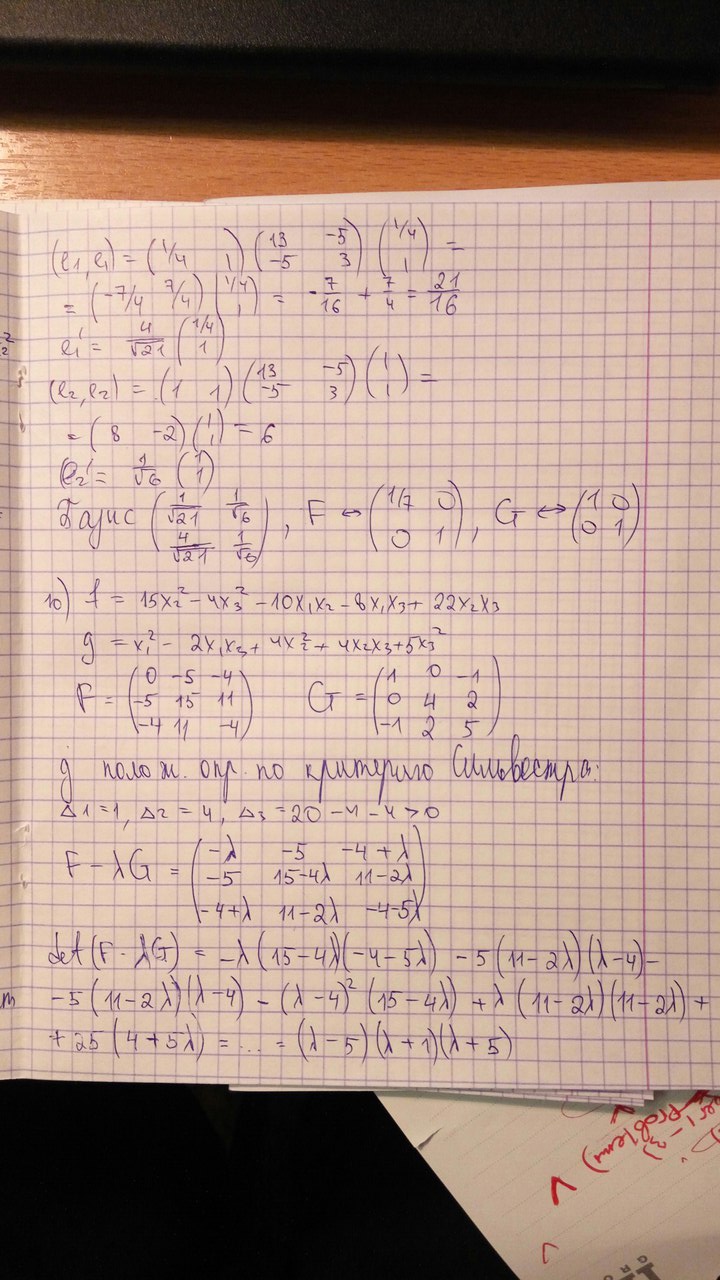 (e₁, e₁) = (1/4 1) (13 -5; -5 3) (1/4; 1) =
= (-7/4 7/4) (1/4; 1) = -7/16 + 7/4 = 21/16
e₁' = 4/√21 (1/4; 1)
(e₂, e₂) = (1 1) (13 -5; -5 3) (1; 1) =
= (8 -2) (1; 1) = 6
e₂' = 1/√6 (1; 1)
Базис (1/√21 1/√6; 4/√21 1/√6), F ↔ (1/7 0; 0 1), G ↔ (1 0; 0 1)
10) f = 15x₂² - 4x₃² - 10x₁x₂ - 8x₁x₃ + 22x₂x₃
g = x₁² - 2x₁x₃ + 4x₂² + 4x₂x₃ + 5x₃²
F = (0 -5 -4; -5 15 11; -4 11 -4) G = (1 0 -1; 0 4 2; -1 2 5)
g полож. опр. по критерию Сильвестра:
Δ1 = 1, Δ2 = 4, Δ3 = 20 - 4 - 4 > 0
F - λG = (-λ -5 -4+λ; -5 15-4λ 11-2λ; -4+λ 11-2λ -4-5λ)
det(F - λG) = -λ(15-4λ)(-4-5λ) - 5(11-2λ)(λ-4) -
-5(11-2λ)(λ-4) - (λ-4)²(15-4λ) + λ(11-2λ)(11-2λ) +
+ 25(4+5λ) = ... = (λ-5)(λ+1)(λ+5)